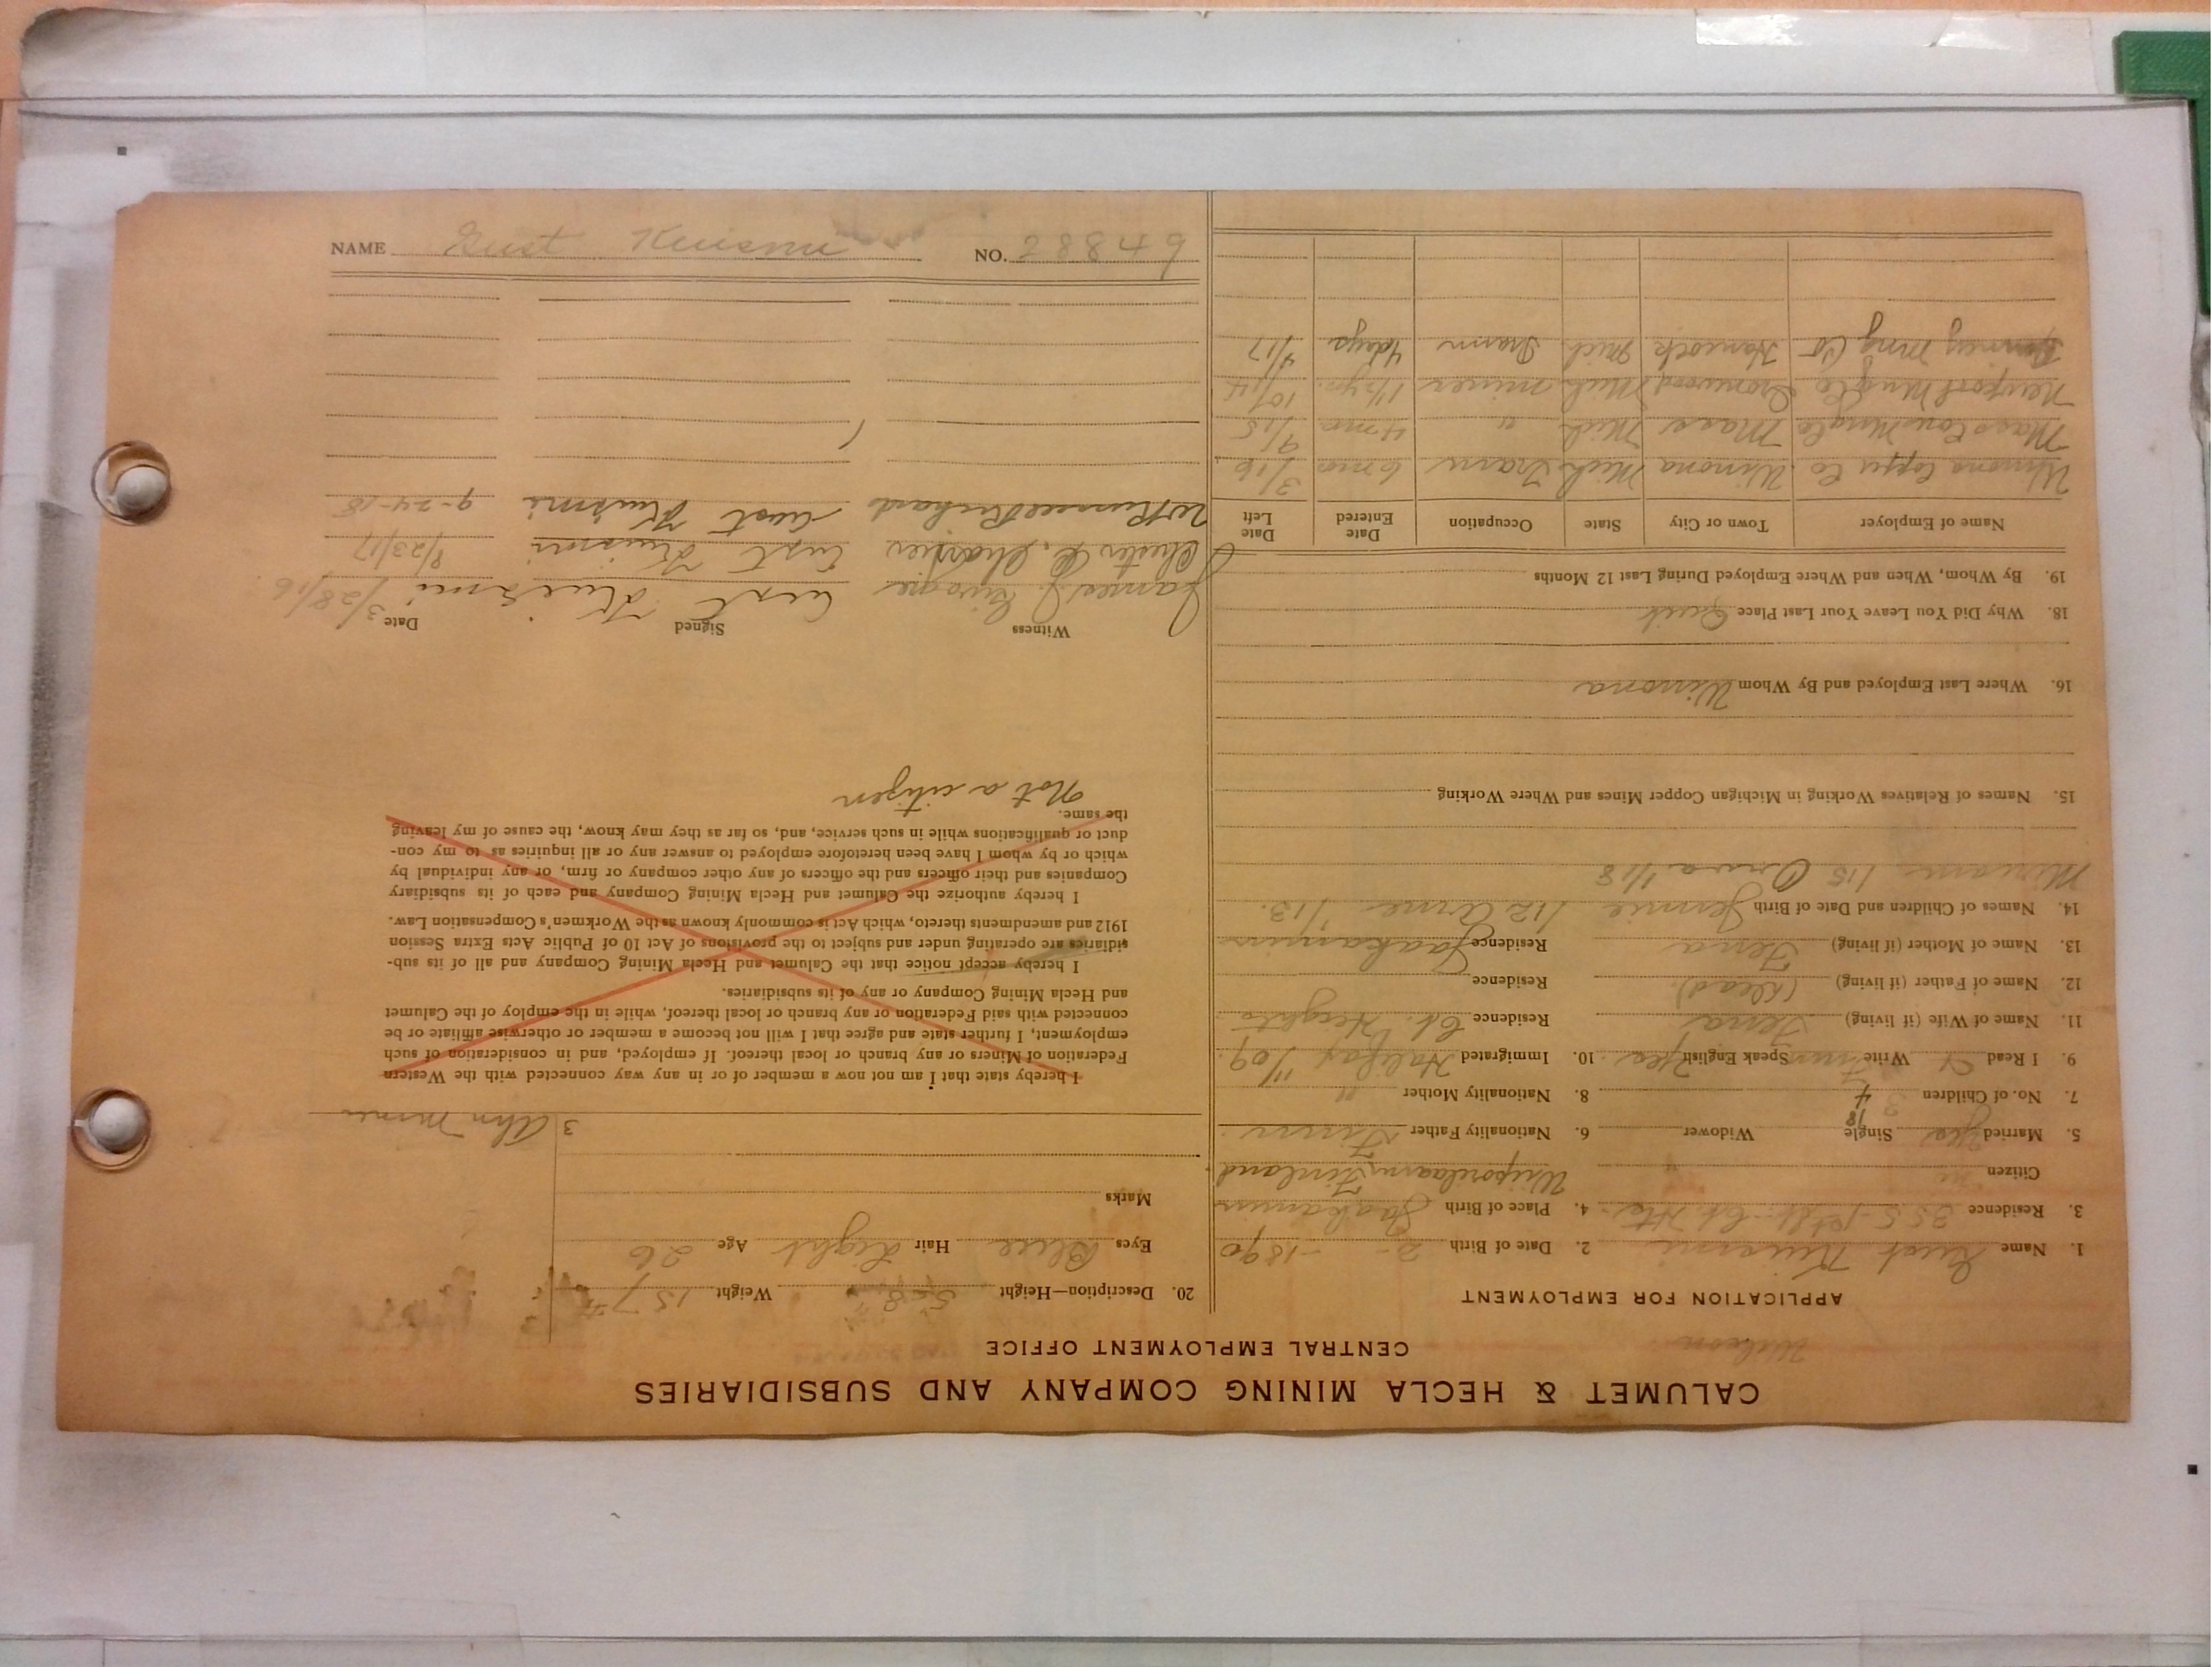 CALUMET & HECLA MINING COMPANY AND SUBSIDIARIES
CENTRAL EMPLOYMENT OFFICE
APPLICATION FOR EMPLOYMENT
1. Name Gust Kuismi 2. Date of Birth 2- -1890
3. Residence 355- 4. Place of Birth Jaakamin
Citizen no Finland
5. Married Yes Single Widower 6. Nationality Father Finn
7. No. of Children 4 8. Nationality Mother "
9. I Read Write Finn Speak English Yes 10. Immigrated Halifax 11/09
11. Name of Wife (if living) Fena Residence Cl. Heights
12. Name of Father (if living) (dead) Residence
13. Name of Mother (if living) Fena Residence Jaakamin
14. Names of Children and Date of Birth Jennie 1/12 Arne 1/13.
1/15 1/18
15. Names of Relatives Working in Michigan Copper Mines and Where Working
16. Where Last Employed and By Whom Winona
18. Why Did You Leave Your Last Place Quit
19. By Whom, When and Where Employed During Last 12 Months
Name of Employer Town or City State Occupation Date Entered Date Left
Winona Copper Co. Winona Mich Tram 6 mos 3/16
Mass Con Mng Co Mass Mich " 4 mos 9/15
Newport Mng Co Ironwood Mich miner 1 1/2 yrs 10/14
Mng Co Hancock Mich Tram 4 days 4/17
20. Description—Height 5-8" Weight 157#
Eyes Blue Hair Light Age 26
Marks
3 Ahm Miner
I hereby state that I am not now a member of or in any way connected with the Western
Federation of Miners or any branch or local thereof. If employed, and in consideration of such
employment, I further state and agree that I will not become a member or otherwise affiliate or be
connected with said Federation or any branch or local thereof, while in the employ of the Calumet
and Hecla Mining Company or any of its subsidiaries.
I hereby accept notice that the Calumet and Hecla Mining Company and all of its sub-
sidiaries are operating under and subject to the provisions of Act 10 of Public Acts Extra Session
1912 and amendments thereto, which Act is commonly known as the Workmen's Compensation Law.
I hereby authorize the Calumet and Hecla Mining Company and each of its subsidiary
Companies and their officers and the officers of any other company or firm, or any individual by
which or by whom I have been heretofore employed to answer any or all inquiries as to my con-
duct or qualifications while in such service, and, so far as they may know, the cause of my leaving
the same.
Not a citizen
Witness Signed Date
James J. Kust Kuismi 3/28/16
Chester C. Kust Kuismi 8/23/17
Kust Kuismi 9-24-18
NAME Gust Kuismi NO. 28849